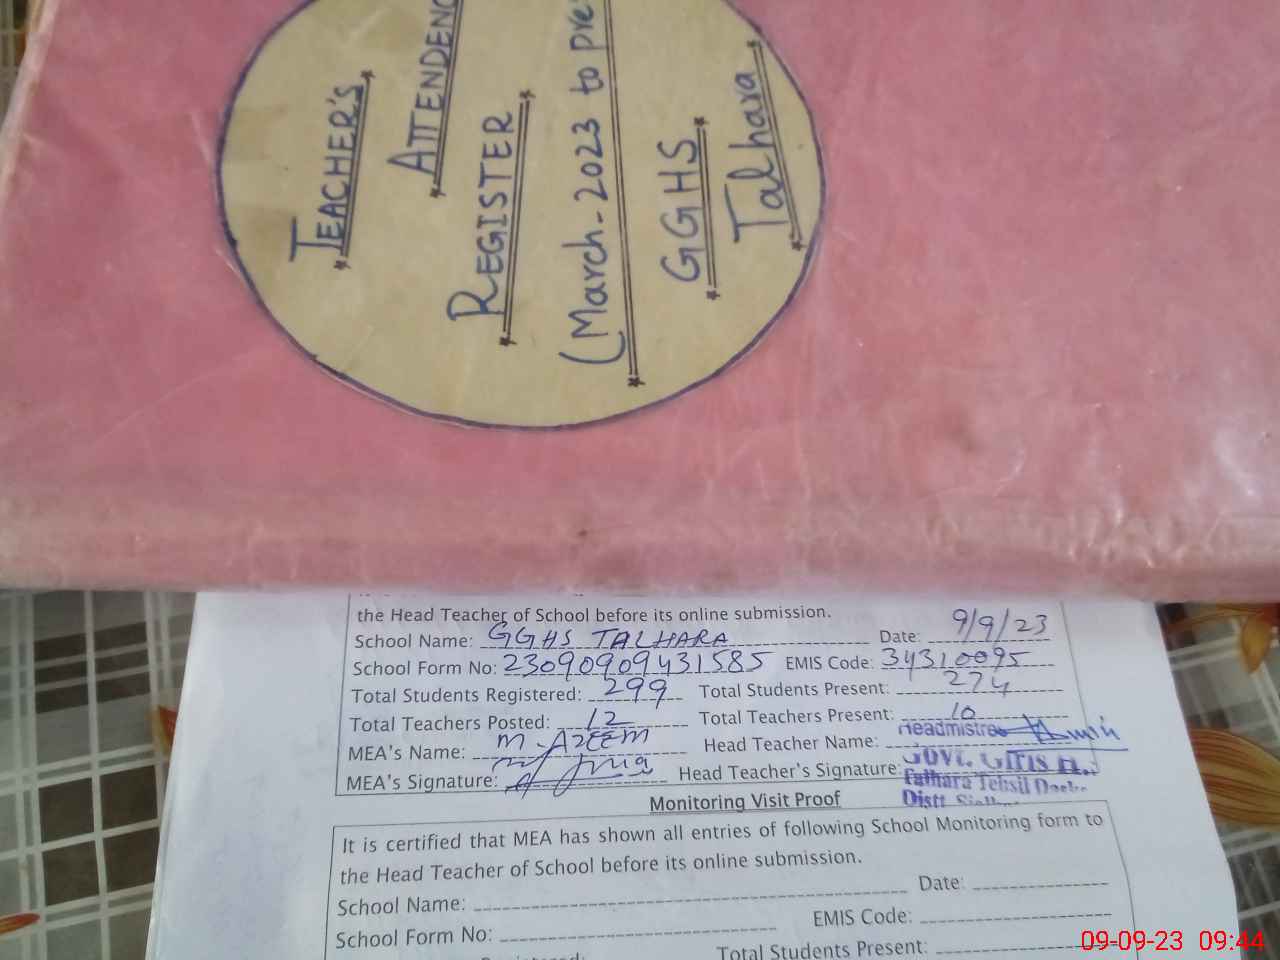 TEACHER'S
ATTENDENC
REGISTER
(March-2023 to pre
GGHS
Talhara
the Head Teacher of School before its online submission.
School Name: GGHS TALHARA Date: 9/9/23
School Form No: 23090909431585 EMIS Code: 34310095
Total Students Registered: 299 Total Students Present: 274
Total Teachers Posted: 12 Total Teachers Present: 10
MEA's Name: M. AZEEM Head Teacher Name: Headmistres
MEA's Signature: Head Teacher's Signature: Govt. Girls H.
Talhara Tehsil
Distt
Monitoring Visit Proof
It is certified that MEA has shown all entries of following School Monitoring form to
the Head Teacher of School before its online submission.
School Name: Date:
School Form No: EMIS Code:
Total Students Present:
09-09-23 09:44